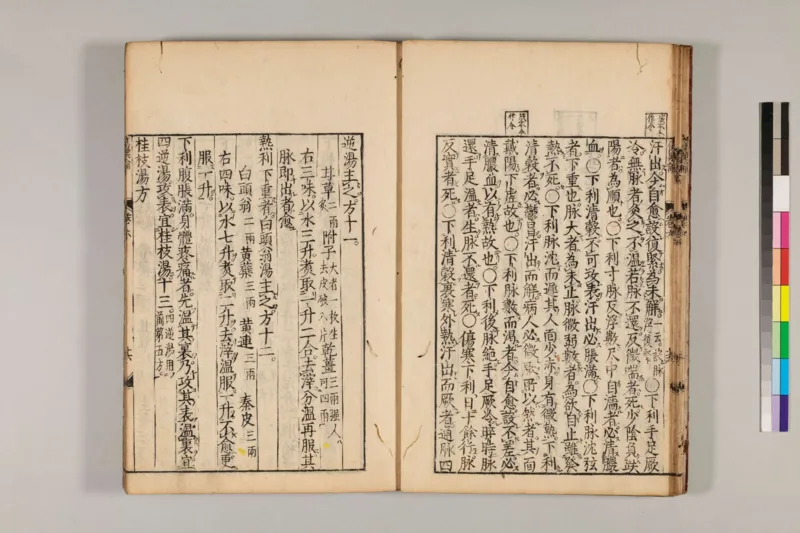 汗出今自愈設復緊為未解○下利手足厥
冷無脉者灸之不温若脉不還反微喘者死少陰負趺
陽者為順也○下利寸脉反浮數尺中自濇者必清膿
血○下利清穀不可攻表汗出必脹滿○下利脉沈弦
者下重也脉大者為未止脉微弱數者為欲自止雖發
熱不死○下利脉沈而遲其人面少赤身有微熱下利
清穀者必鬱冒汗出而解病人必微厥所以然者其面
戴陽下虛故也○下利脉數而渴者今自愈設不差必
清膿血以有熱故也○下利後脉絶手足厥冷晬時脉
還手足温者生脉不還者死○傷寒下利日十餘行脉
反實者死○下利清穀裏寒外熱汗出而厥者通脉四
逆湯主之方十一。
甘草二兩炙 附子大者一枚生去皮破八片 乾薑三兩強人可四兩
右三味以水三升煮取一升二合去滓分温再服其
脉即出者愈
熱利下重者白頭翁湯主之方十二。
白頭翁二兩 黃蘗三兩 黃連三兩 秦皮三兩
右四味以水七升煮取二升去滓温服一升不愈更
服一升
下利腹脹滿身體疼痛者先温其裏乃攻其表温裏宜
四逆湯攻表宜桂枝湯十三。四逆湯用前第五方
桂枝湯方